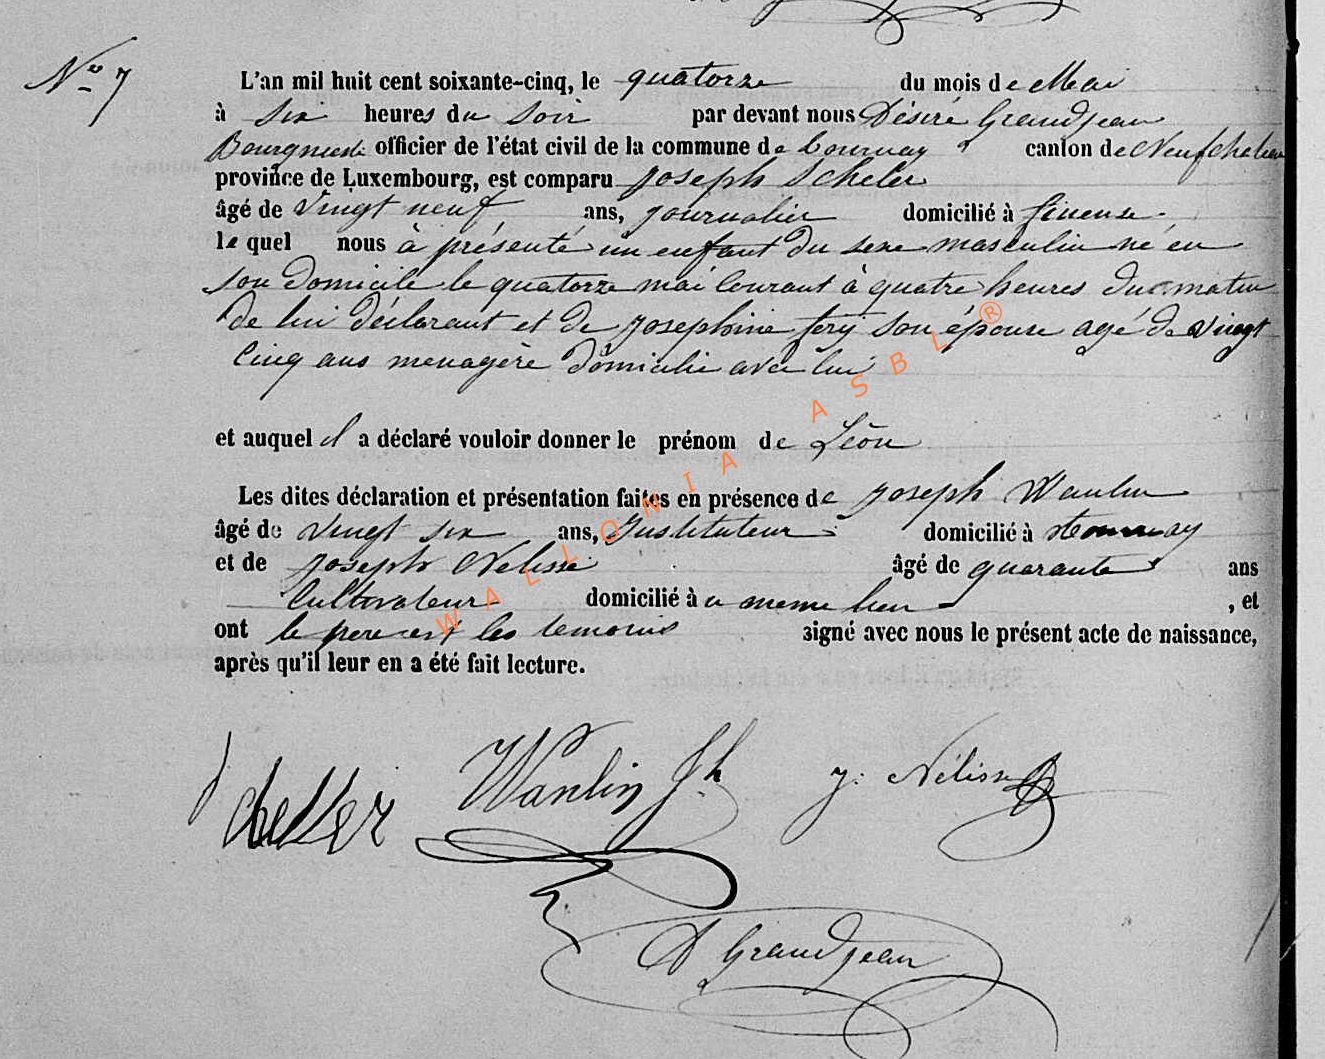 No 7
L'an mil huit cent soixante-cinq, le quatorze du mois de Mai
à six heures du soir par devant nous Désiré Grandjean
Bourgmestre officier de l'état civil de la commune de Tournay canton de Neufchateau
province de Luxembourg, est comparu Joseph Scheler
âgé de vingt neuf ans, journalier domicilié à
lequel nous à présenté un enfant du sexe masculin né en
son domicile le quatorze mai courant à quatre heures du matin
de lui déclarant et de Josephine fery son épouse agé de vingt
cinq ans menagère domicilié avec lui
et auquel il a déclaré vouloir donner le prénom de Léon
Les dites déclaration et présentation faites en présence de Joseph Wanlin
âgé de vingt six ans, Instituteur domicilié à Tournay
et de Joseph Nelisse âgé de quarante ans
Cultivateur domicilié à meme lieu, et
ont le pere et les temoins signé avec nous le présent acte de naissance,
après qu'il leur en a été fait lecture.
Wanlin Jh J: Nélisse
D Grandjean
WALLONIA ASBL ®